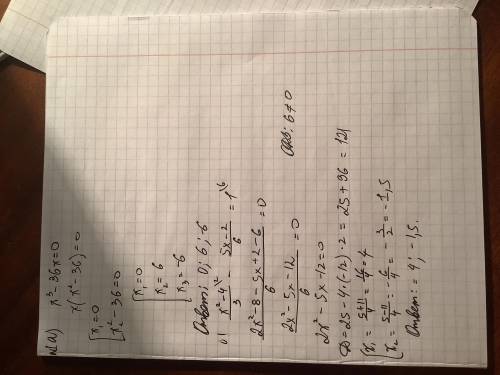 №1 a) x³ - 36x = 0
x(x² - 36) = 0
[x₁ = 0
[x² - 36 = 0
[x₁ = 0
[x₂ = 6
[x₃ = -6
Ответ: 0; 6; -6
б) (x² - 4)/3 \² - (5x - 2)/6 = 1 \⁶
(2x² - 8 - 5x + 2 - 6)/6 = 0
(2x² - 5x - 12)/6 = 0 ОДЗ: 6 ≠ 0
2x² - 5x - 12 = 0
D = 25 - 4 · (-12) · 2 = 25 + 96 = 121
[x₁ = (5+11)/4 = 16/4 = 4
[x₂ = (5-11)/4 = -6/4 = -3/2 = -1,5
Ответ: 4; -1,5.